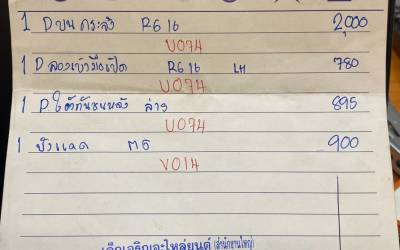 1 D บน กระจัง R6 16 2,000
V074
1 D รองเบ้ามือเปิด R6 16 LH 780
V074
1 D ใต้กันชนหลัง ล่าง 895
V074
1 บังแดด M6 900
V014
เจริญอะไหล่ยนต์ (สำนักงานใหญ่)